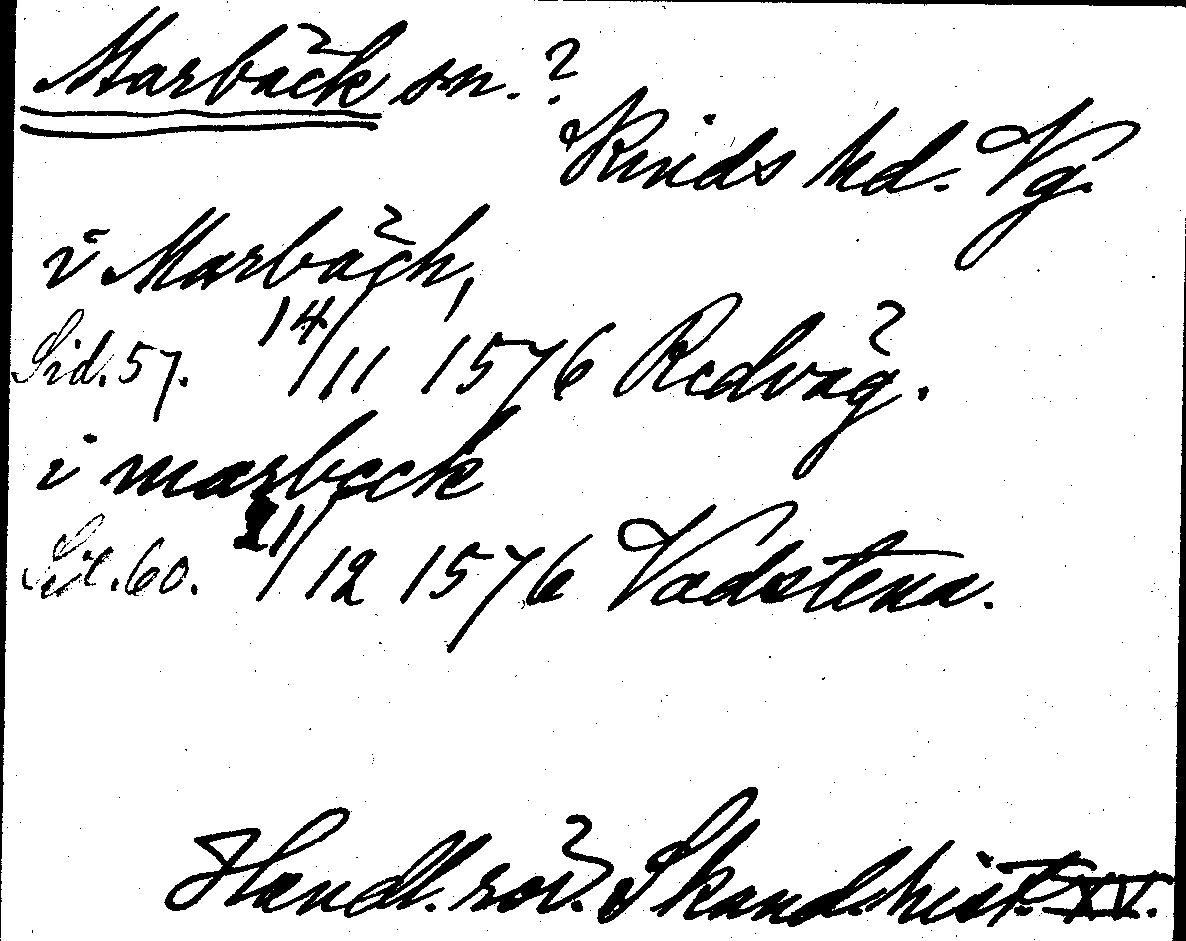 Marbäck sn. ?
Kinds hd. Vg.
i Marbäch,
Sid. 57. 14/11 1576 Redväg.
i marbeck
Sid. 60. 21/12 1576 Vadstena.
Handl. rör. Skand. hist. XV.